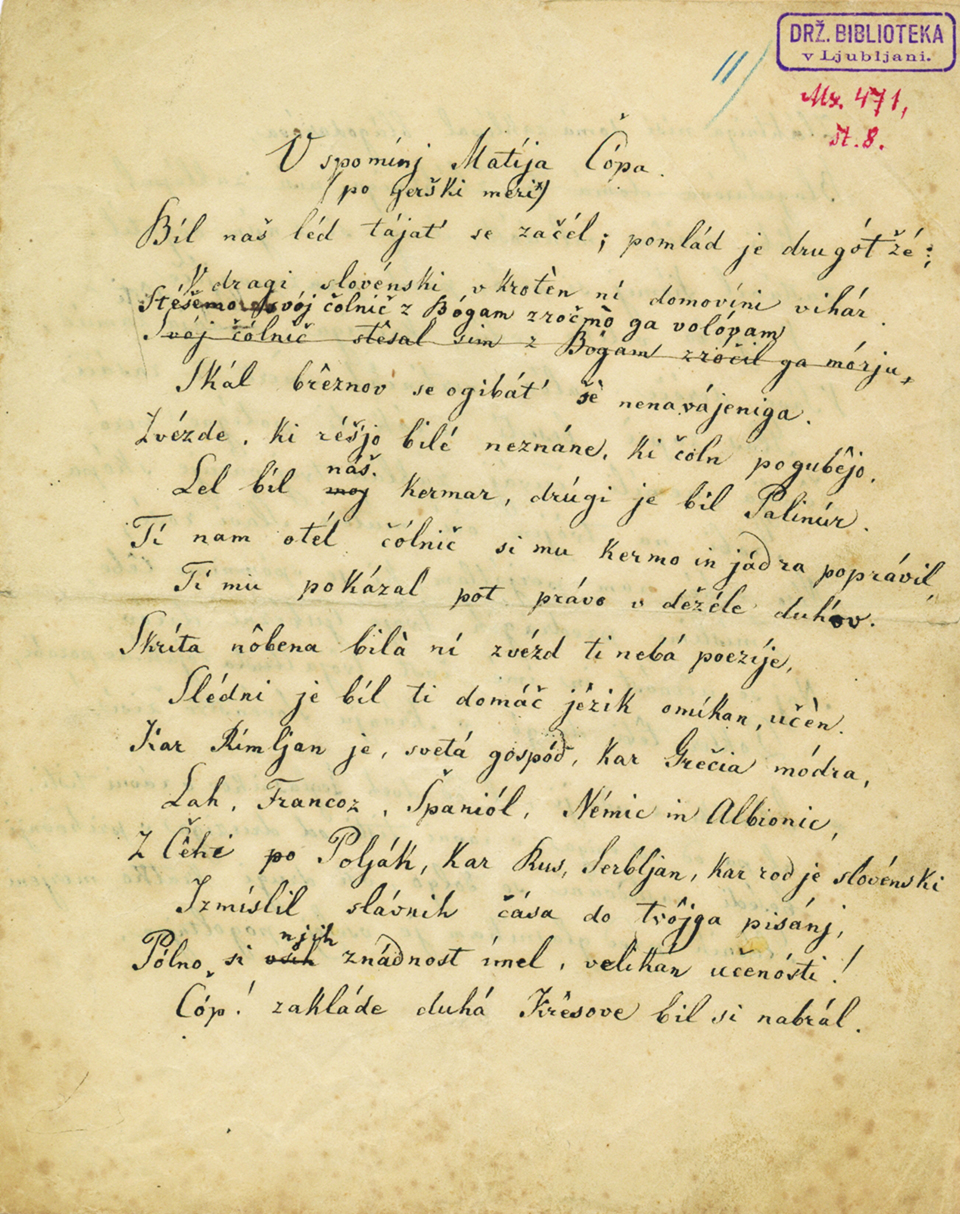 DRŽ. BIBLIOTEKA
v Ljubljani.
11/
Ms. 471,
št. 8.
V spomínj Matíja Čópa.
(po gerški meri*)
Bíl naš léd tájat' se začél; pomlád je drugót žé;
V dragi slovénski vkrotèn ní domovíni vihár.
Stéšemo svój čolníč z Bógam zročmò ga volóvam
Svój čólnič stêsal sim z Bógam zročil ga mórju,
Skál brêznov se ogibát' šè nenavájeniga.
Zvézde, ki réšjo bilé neznáne, ki čóln pogubêjo,
náš.
Lel bíl moj kermar, drúgi je bíl Palinúr.
Tí nam otél čólnič si mu kermo in jádra poprávil,
Tí mu pokázal pot právo v dežéle duhóv.
Skríta nôbena bilà ní zvézd ti nebá poezíje,
Slédni je bíl ti domáč jézik omíkan, učèn.
Kar Rímljan je, svetá gospód, kar Grêčia módra,
Lah, Francoz, Španiól, Némic in Albionic,
Z Čêhi po Polják, kar Rus, Serbljan, kar rod je slovénski
Izmíslil slávnih čása do tvôjga pisánj,
njih
Pólno si vsih znádnost imel, velikán učenósti!
Čóp! zakláde duhá Krêsove bil si nabrál.